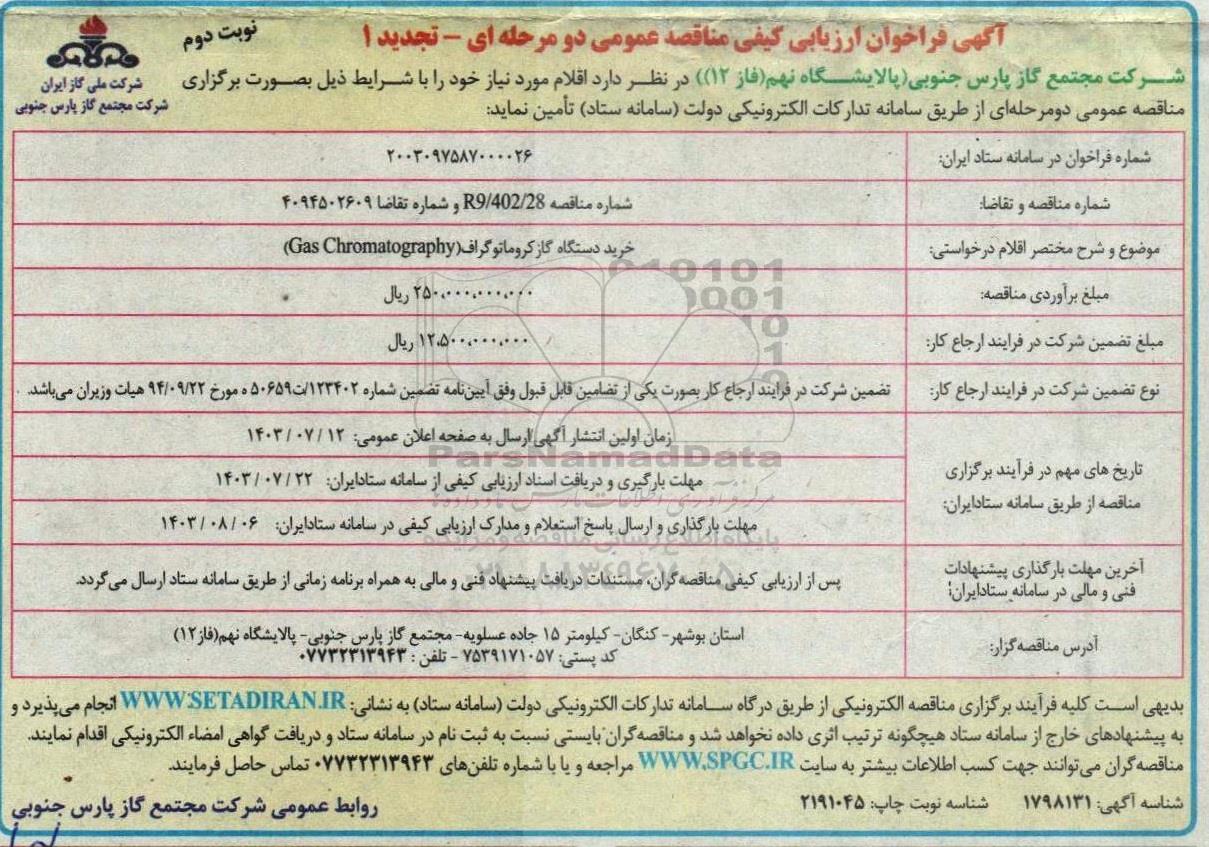 آگهی فراخوان ارزیابی کیفی مناقصه عمومی دو مرحله ای – تجدید ۱
نوبت دوم
شرکت ملی گاز ایران
شرکت مجتمع گاز پارس جنوبی
شرکت مجتمع گاز پارس جنوبی(پالایشگاه نهم(فاز ۱۲)) در نظر دارد اقلام مورد نیاز خود را با شرایط ذیل بصورت برگزاری
مناقصه عمومی دومرحله‌ای از طریق سامانه تدارکات الکترونیکی دولت (سامانه ستاد) تأمین نماید:
شماره فراخوان در سامانه ستاد ایران: ۲۰۰۳۰۹۷۵۸۷۰۰۰۰۲۶
شماره مناقصه و تقاضا: شماره مناقصه R9/402/28 و شماره تقاضا ۴۰۹۴۵۰۲۶۰۹
موضوع و شرح مختصر اقلام درخواستی: خرید دستگاه گازکروماتوگراف(Gas Chromatography)
مبلغ برآوردی مناقصه: ۲۵۰,۰۰۰,۰۰۰,۰۰۰ ریال
مبلغ تضمین شرکت در فرایند ارجاع کار: ۱۲,۵۰۰,۰۰۰,۰۰۰ ریال
نوع تضمین شرکت در فرایند ارجاع کار: تضمین شرکت در فرایند ارجاع کار بصورت یکی از تضامین قابل قبول وفق آیین‌نامه تضمین شماره ۱۲۳۴۰۲/ت۵۰۶۵۹ ه مورخ ۹۴/۰۹/۲۲ هیات وزیران می‌باشد.
تاریخ های مهم در فرآیند برگزاری
مناقصه از طریق سامانه ستادایران:
زمان اولین انتشار آگهی/ارسال به صفحه اعلان عمومی: ۱۴۰۳/۰۷/۱۲
مهلت بارگیری و دریافت اسناد ارزیابی کیفی از سامانه ستادایران: ۱۴۰۳/۰۷/۲۲
مهلت بارگذاری و ارسال پاسخ استعلام و مدارک ارزیابی کیفی در سامانه ستادایران: ۱۴۰۳/۰۸/۰۶
آخرین مهلت بارگذاری پیشنهادات
فنی و مالی در سامانه ستادایران:
پس از ارزیابی کیفی مناقصه‌گران، مستندات دریافت پیشنهاد فنی و مالی به همراه برنامه زمانی از طریق سامانه ستاد ارسال می‌گردد.
آدرس مناقصه‌گزار:
استان بوشهر- کنگان- کیلومتر ۱۵ جاده عسلویه- مجتمع گاز پارس جنوبی- پالایشگاه نهم(فاز۱۲)
کد پستی: ۷۵۳۹۱۷۱۰۵۷ - تلفن : ۰۷۷۳۲۳۱۳۹۴۳
بدیهی است کلیه فرآیند برگزاری مناقصه الکترونیکی از طریق درگاه سامانه تدارکات الکترونیکی دولت (سامانه ستاد) به نشانی: WWW.SETADIRAN.IR انجام می‌پذیرد و
به پیشنهادهای خارج از سامانه ستاد هیچگونه ترتیب اثری داده نخواهد شد و مناقصه‌گران بایستی نسبت به ثبت نام در سامانه ستاد و دریافت گواهی امضاء الکترونیکی اقدام نمایند.
مناقصه‌گران می‌توانند جهت کسب اطلاعات بیشتر به سایت WWW.SPGC.IR مراجعه و یا با شماره تلفن‌های ۰۷۷۳۲۳۱۳۹۴۳ تماس حاصل فرمایند.
شناسه آگهی: ۱۷۹۸۱۳۱ شناسه نوبت چاپ: ۲۱۹۱۰۴۵
روابط عمومی شرکت مجتمع گاز پارس جنوبی
ParsNamadData
پایگاه اطلاع رسانی مناقصه و مزایده